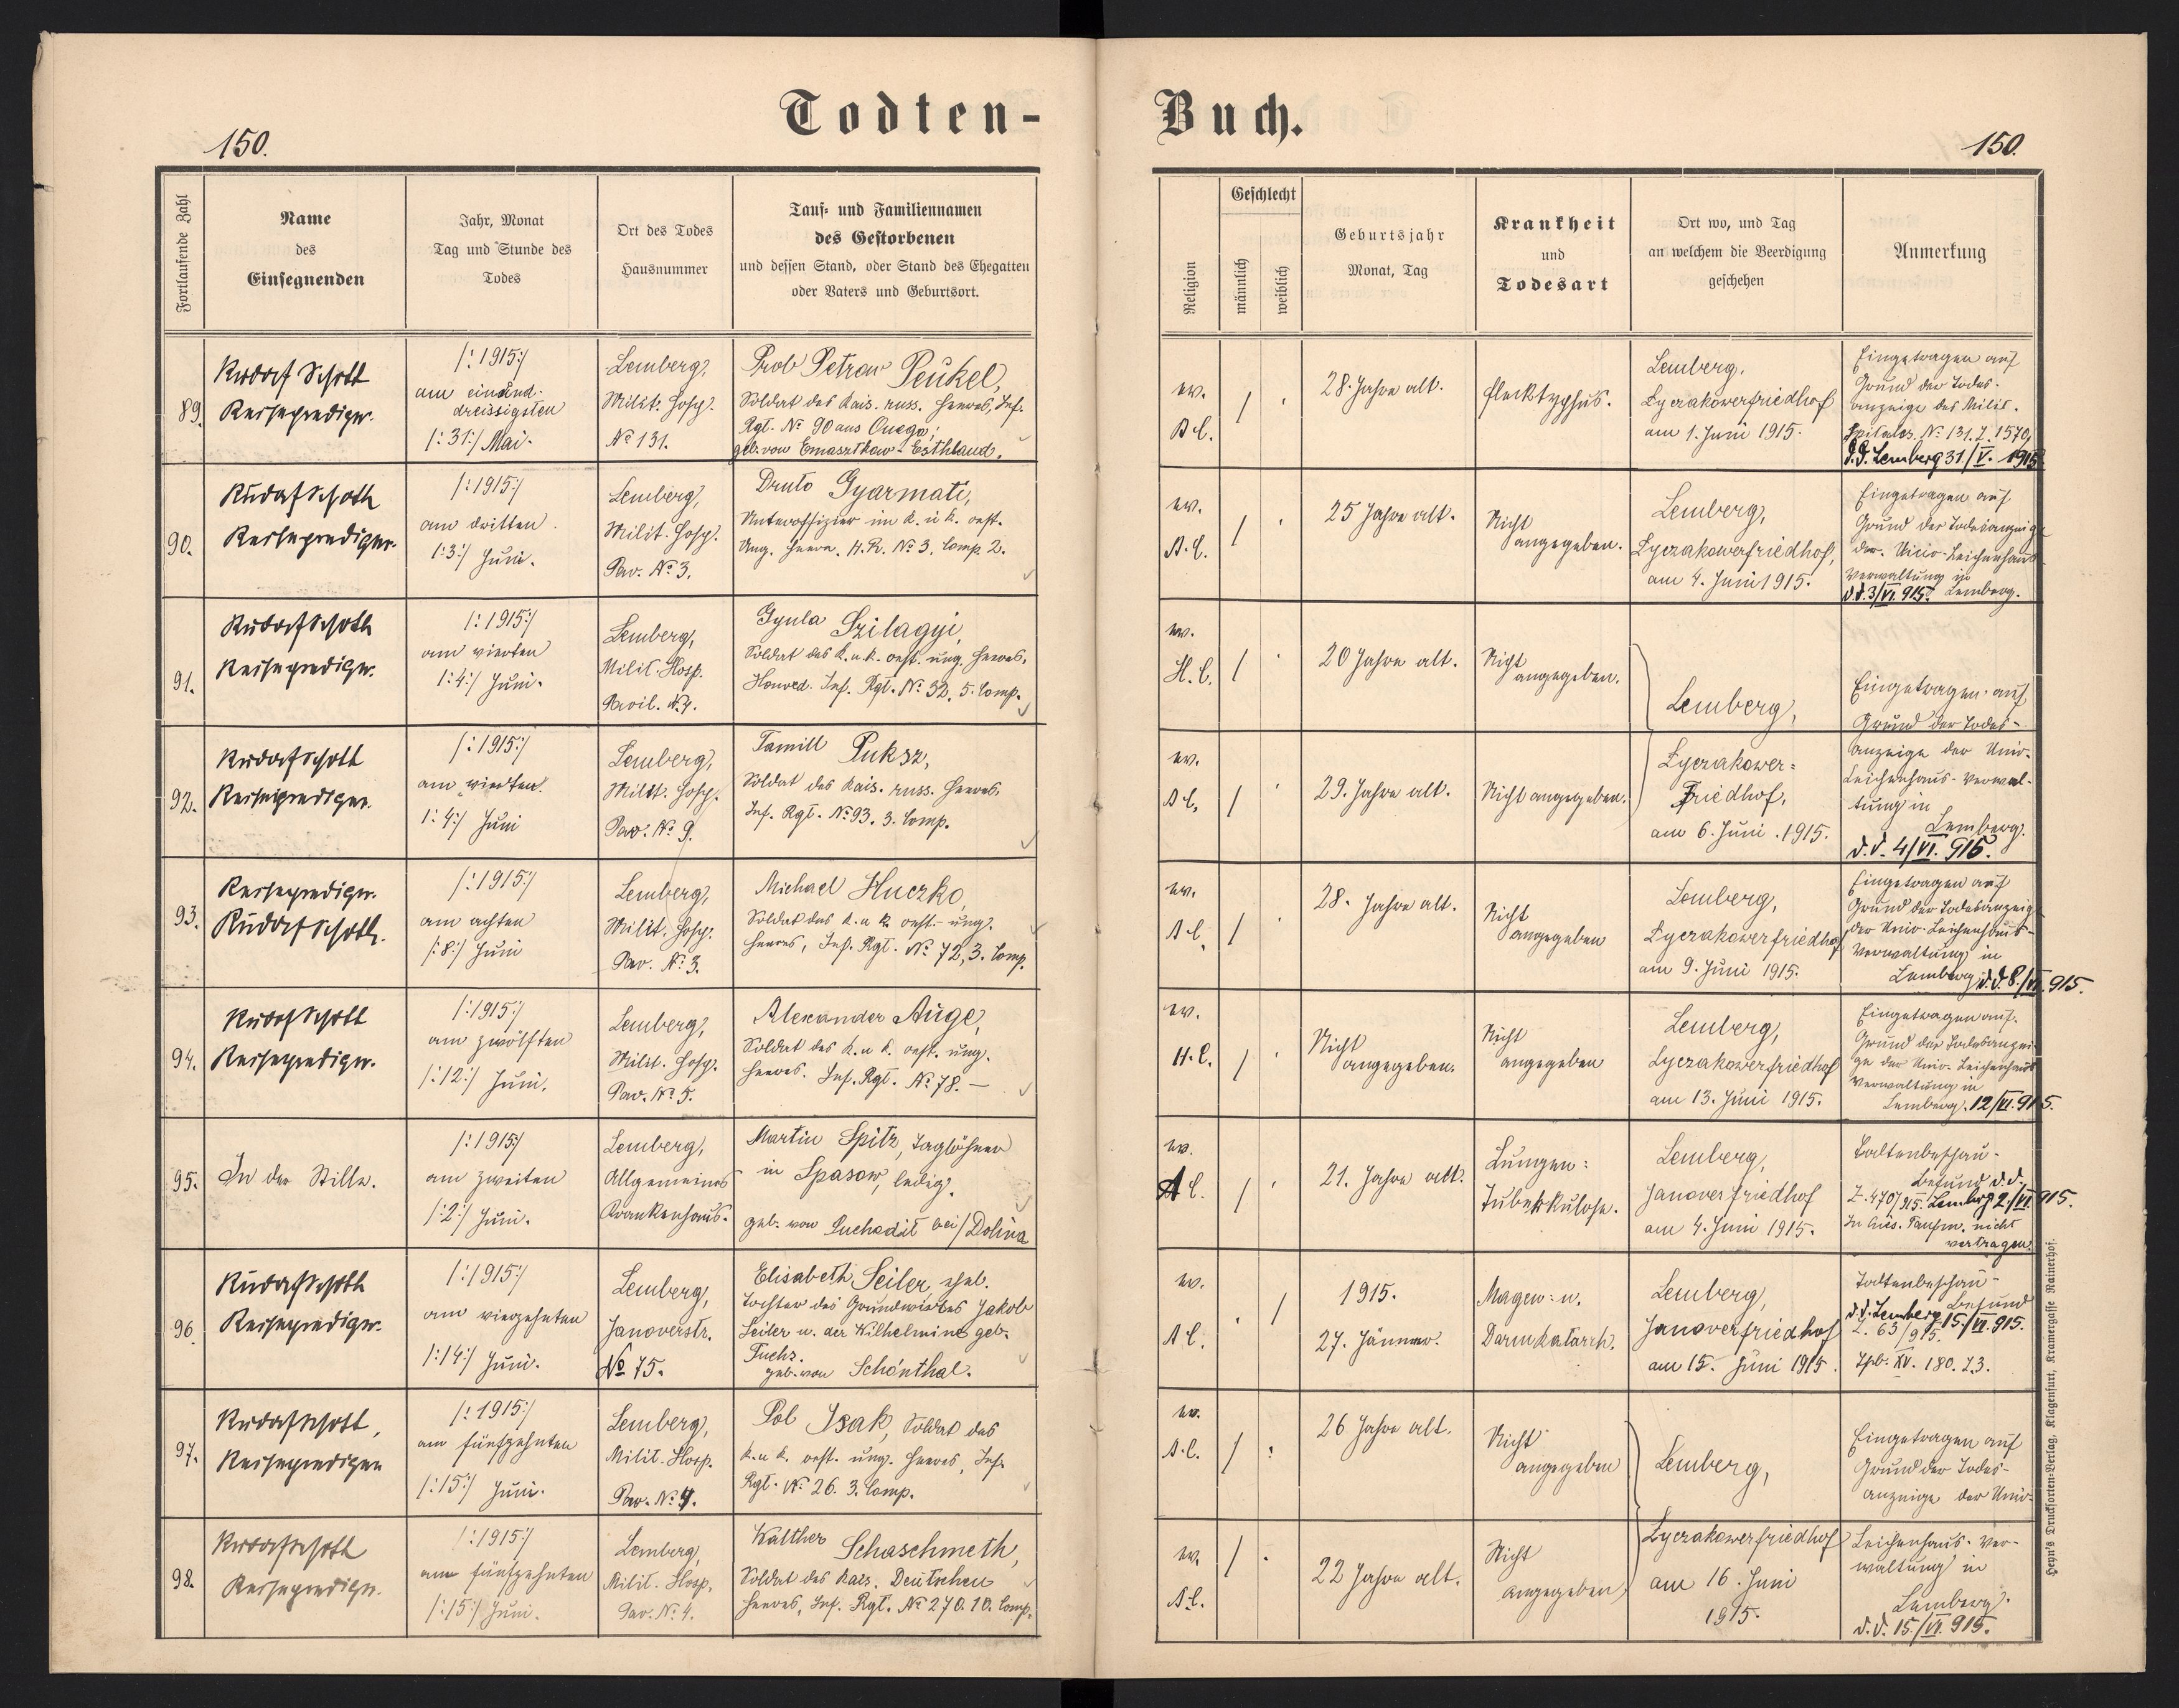 Todten-
Buch.
150.
150.
Fortlaufende Zahl
Name
des
Einsegnenden
Jahr, Monat
Tag und Stunde des
Todes
Ort des Todes
Hausnummer
Tauf- und Familiennamen
des Gestorbenen
und dessen Stand, oder Stand des Ehegatten
oder Vaters und Geburtsort.
Religion
Geschlecht
männlich
weiblich
Geburtsjahr
Monat, Tag
Krankheit
und
Todesart
Ort wo, und Tag
an welchem die Beerdigung
geschehen
Anmerkung
89.
Rudolf Schott
Reiseprediger.
/:1915:/
am einund-
dreissigsten
/:31:/ Mai.
Lemberg,
Milit. Hosp.
No 131.
Prob Petrow Peukel,
Soldat des Kais. russ. Heeres, Inf.
Rgt. No 90 aus Onega;
geb. von Emasztkow - Esthland.
ev.
A.C.
/
28. Jahre alt.
Flecktyphus.
Lemberg,
Lyczakowerfriedhof
am 1. Juni 1915.
Eingetragen auf
Grund der Todes-
anzeige des Milit.
Spitales. No 131. Z. 1570,
d.d. Lemberg 31./V. 1915
90.
Rudolf Schott
Reiseprediger.
/:1915:/
am dritten
/:3:/ Juni.
Lemberg,
Milit. Hosp.
Pav. No 3.
Druto Gyarmati,
Unteroffizier im k. u k. oest.
Ung. Heere. H.R. No 3. Comp. 2.
ev.
A.C.
/
25 Jahre alt.
Nicht
angegeben.
Lemberg,
Lyczakowerfriedhof,
am 4. Juni 1915.
Eingetragen auf
Grund der Todesanzeige
der Univ-Leichenhaus
Verwaltung in
d.d. 3/VI. 915. Lemberg.
91.
Rudolf Schott
Reiseprediger.
/:1915:/
am vierten
/:4:/ Juni.
Lemberg,
Milit. Hosp.
Pavil. No 4.
Gyula Szilagyi,
Soldat des k. u. k. oest. ung. Heeres,
Honved. Inf. Rgt. No 32, 5. Comp.
ev.
H.C.
/
20 Jahre alt.
Nicht
angegeben.
Lemberg,
Eingetragen auf
Grund der Todes-
92.
Rudolf Schott
Reiseprediger.
/:1915:/
am vierten
/:4:/ Juni
Lemberg,
Milit. Hosp.
Pav. No 9.
Tamill Puksz,
Soldat des Kais. russ. Heeres.
Inf. Rgt. No 93. 3. Comp.
ev.
A.C.
/
29. Jahre alt.
Nicht angegeben.
Lyczakower-
Friedhof,
am 6. Juni 1915.
anzeige der Univ-
Leichenhaus-Verwal-
tung in
Lemberg.
d.d. 4/VI. 915.
93.
Reiseprediger.
Rudolf Schott.
/:1915:/
am achten
/:8:/ Juni
Lemberg,
Milit. Hosp.
Pav. No 3.
Michael Huczko,
Soldat des k. u k. oest.-ung.
Heeres, Inf. Rgt. No 72, 3. Comp.
ev.
A.C.
/
28. Jahre alt.
Nicht
angegeben
Lemberg,
Lyczakowerfriedhof
am 9. Juni 1915.
Eingetragen auf
Grund der Todesanzeige
der Univ-Leichenhaus-
Verwaltung in
Lemberg d.d. 8./VI. 915.
94.
Rudolf Schott
Reiseprediger.
/:1915:/
am zwölften
/:12:/ Juni.
Lemberg,
Milit. Hosp.
Pav. No 5.
Alexander Auge,
Soldat des k. u k. oest. ung.
Heeres. Inf. Rgt. No 78. —
ev.
H.C.
/
Nicht
angegeben.
Nicht
angegeben
Lemberg,
Lyczakowerfriedhof
am 13. Juni 1915.
Eingetragen auf.
Grund der Todesanzei-
ge der Univ-Leichenhaus
Verwaltung in
Lemberg. 12/VI. 915.
95.
In der Stille.
/:1915:/
am zweiten
/:2:/ Juni.
Lemberg,
Allgemeines
Krankenhaus.
Martin Spitz, Taglöhner
in Spasow, ledig.
geb. von Suchodil bei / Dolina
ev.
A.C.
/
21. Jahre alt.
Lungen-
Tuberkulose.
Lemberg,
Janoverfriedhof
am 4. Juni 1915.
Todtenbeschau-
Befund d.d.
Z. 470/915. Lemberg 2./VI. 915.
In Aus. Taufm. nicht
vertragen.
96.
Rudolf Schott
Reiseprediger.
/:1915:/
am vierzehnten
/:14:/ Juni.
Lemberg,
Janoverstr.
No 75.
Elisabeth Seiler, ehel.
Tochter des Grundwirtes Jakob
Seiler u. der Wilhelmine geb.
Fuchs.
geb. von Schönthal.
ev.
A.C.
/
1915.
27. Jänner.
Magen- u.
Darmkatarrh.
Lemberg,
Janoverfriedhof
am 15. Juni 1915.
Todtenbeschau-
Befund
d.d. Lemberg 15./VI. 915.
Z. 63/915.
Tfb. XV. 180. Z. 3.
97.
Rudolf Schott,
Reiseprediger
/:1915:/
am fünfzehnten
/:15:/ Juni.
Lemberg,
Milit. Hosp.
Pav. No 4.
Pol Isak, Soldat des
k. u k. oest. ung. Heeres, Inf.
Rgt. No 26. 3. Comp.
ev.
A.C.
/
26 Jahre alt.
Nicht
angegeben
Lemberg,
Eingetragen auf
Grund der Todes-
anzeige der Univ-
98.
Rudolf Schott
Reiseprediger.
/:1915:/
am fünfzehnten
/:15:/ Juni.
Lemberg,
Milit. Hosp.
Pav. No 4.
Walther Schaschmeth,
Soldat des Kais. Deutschen
Heeres, Inf. Rgt. No 270. 10. Comp.
ev.
A.C.
/
22 Jahre alt.
Nicht
angegeben
Lyczakowerfriedhof
am 16. Juni
1915.
Leichenhaus-Ver-
waltung in
Lemberg.
d.d. 15./VI. 915.
Heyn's Drucksorten-Verlag, Klagenfurt, Kramergasse Rainerhof.